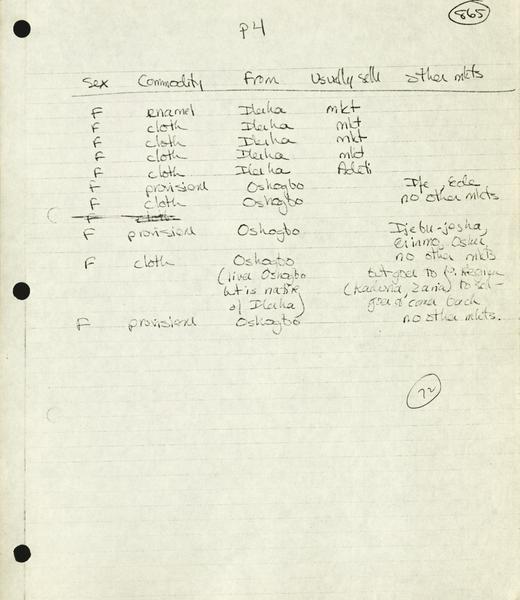 865
p4
Sex Commodity From Usually sells other mkts
F enamel Ilesha mkt
F cloth Ilesha mkt
F cloth Ilesha mkt
F cloth Ilesha mkt
F cloth Ilesha
F provisions Oshogbo Ife, Ede
F cloth Oshogbo no other mkts
F cloth
F provisions Oshogbo Ijebu-jesha,
F cloth Oshogbo no other mkts
(lives Oshogbo but goes to N. Nigeria
but is native (Kaduna, Zaria) to sell -
of Ilesha) goes & comes back
F provisions Oshogbo no other mkts.
72